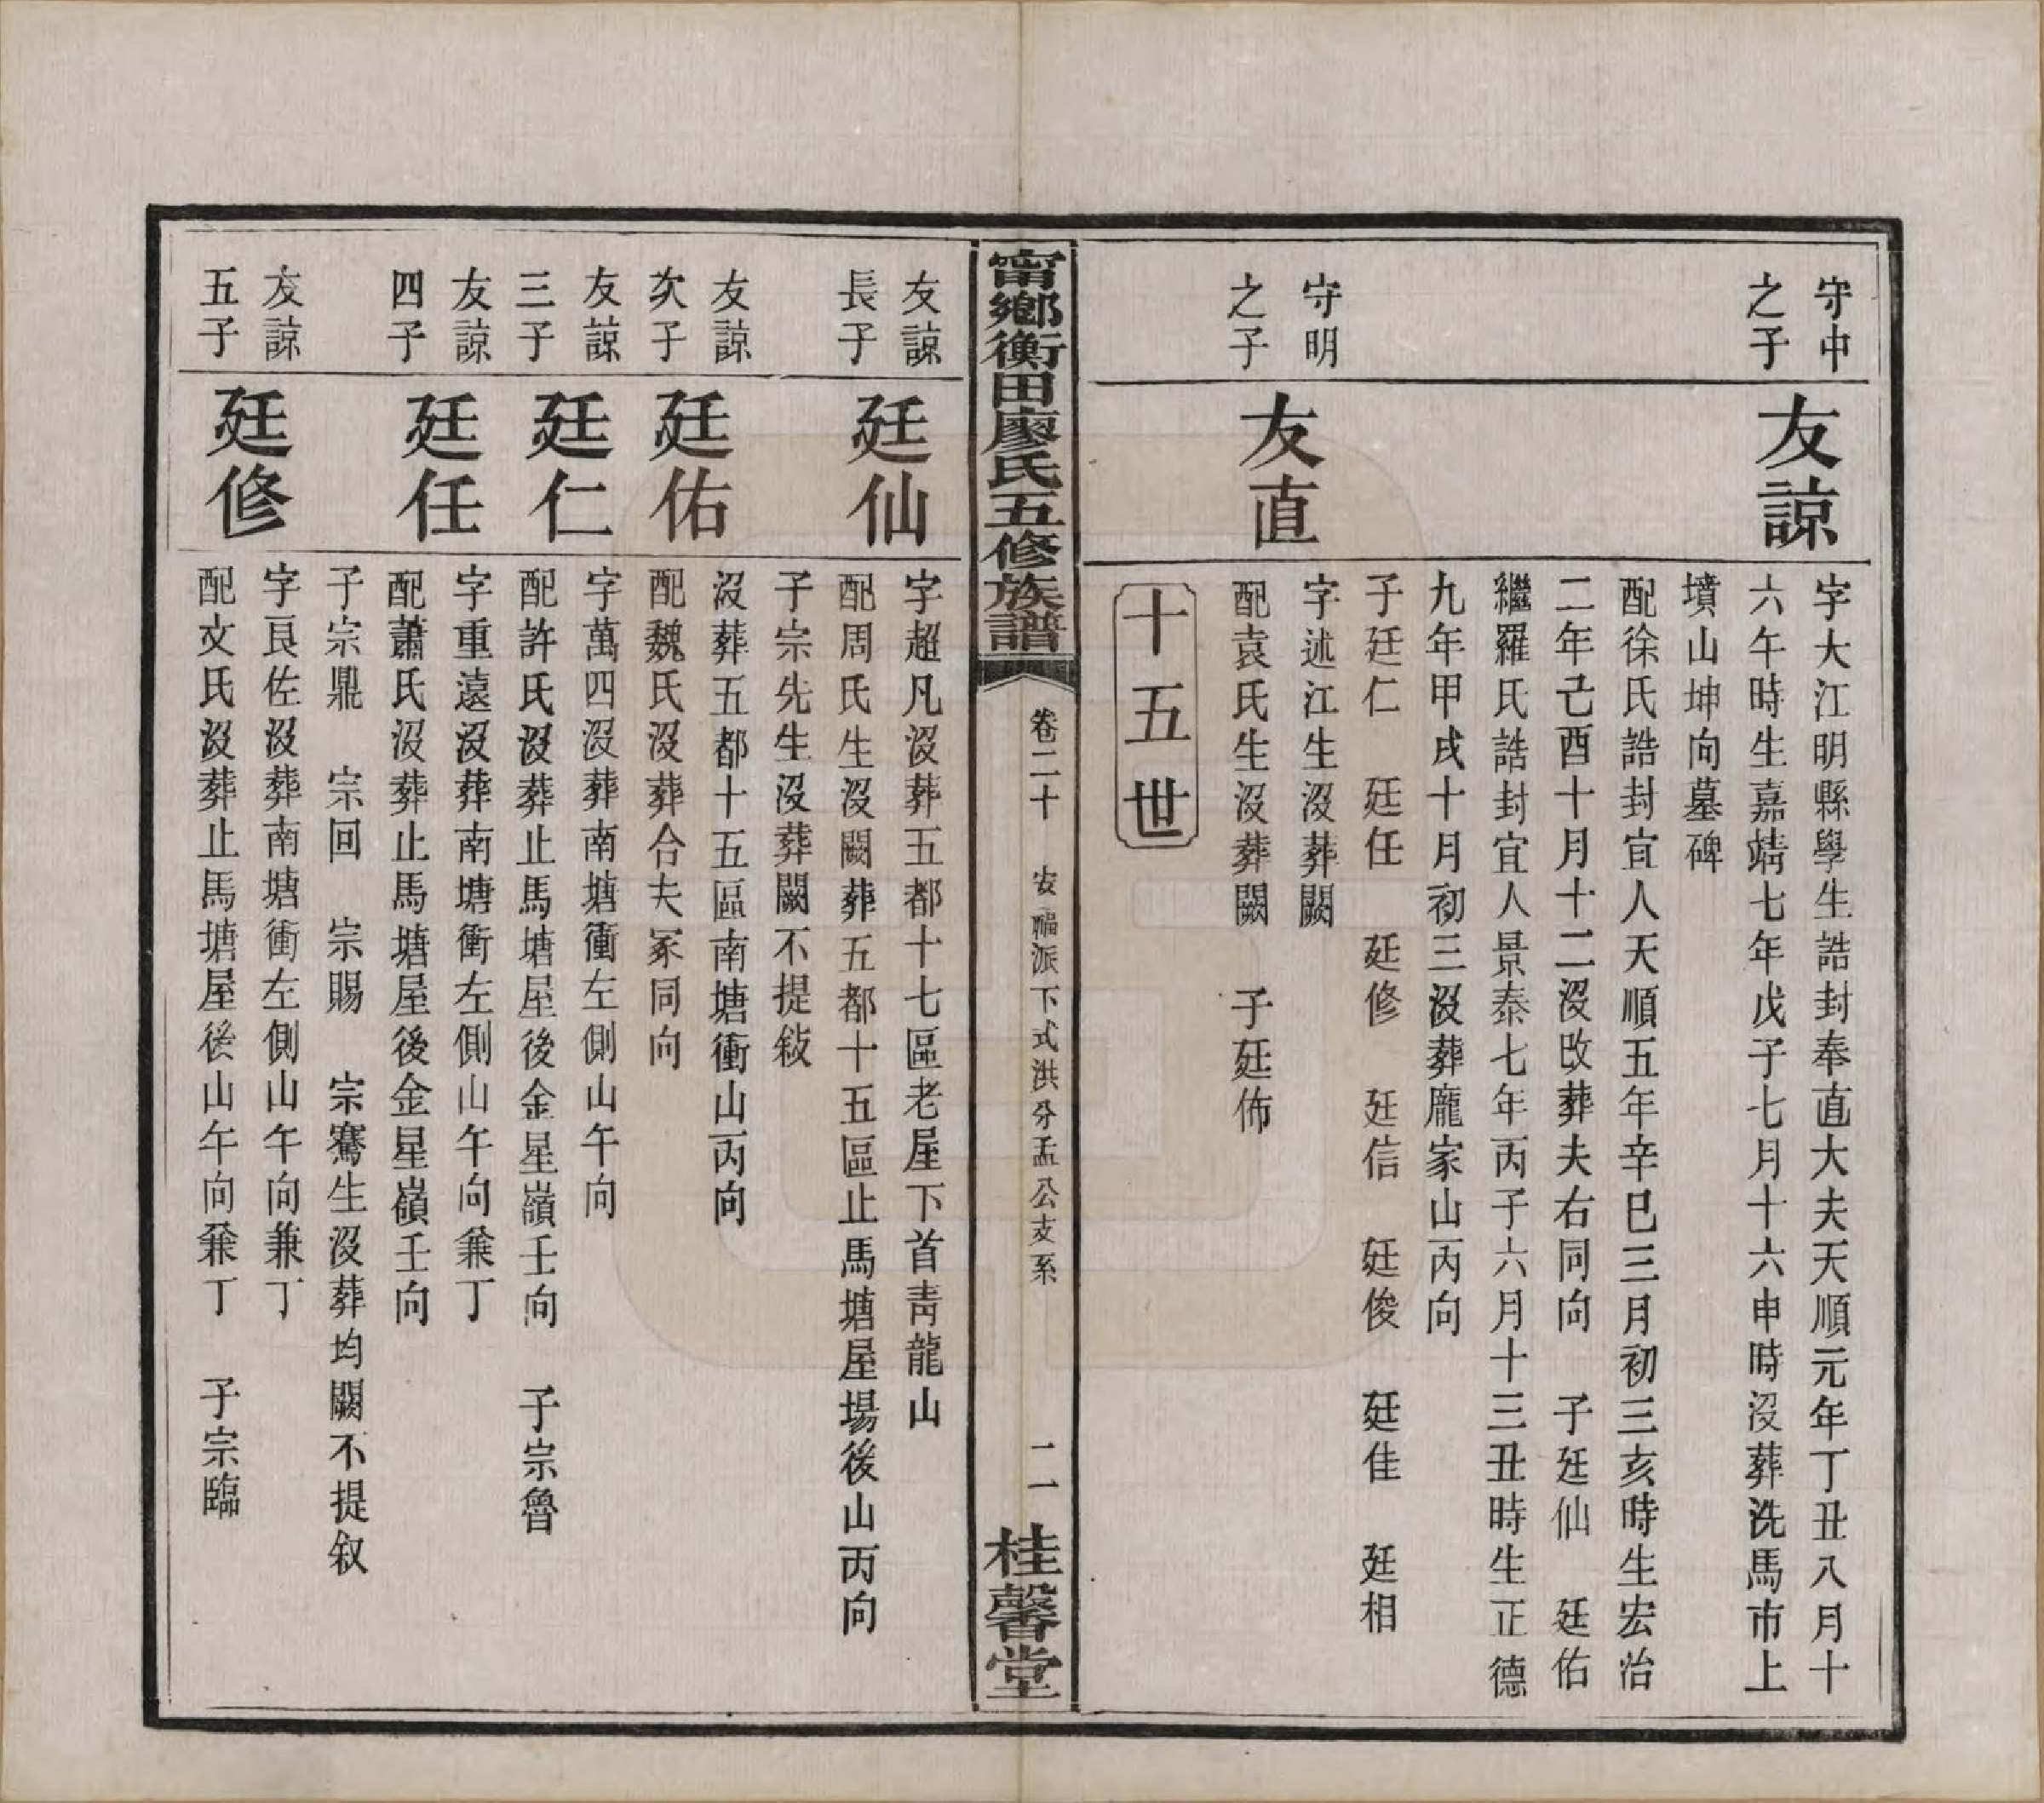 守中
之子
友諒
字大江明縣學生誥封奉直大夫天順元年丁丑八月十
六午時生嘉靖七年戊子七月十六申時沒葬洗馬市上
墳山坤向墓碑
配徐氏誥封宜人天順五年辛巳三月初三亥時生宏治
二年己酉十月十二沒改葬夫右同向 子廷仙 廷佑
繼羅氏誥封宜人景泰七年丙子六月十三丑時生正德
九年甲戌十月初三沒葬龐家山丙向
子廷仁 廷任 廷修 廷信 廷俊 廷佳 廷相
守明
之子
友直
字述江生沒葬闕
配袁氏生沒葬闕 子廷佈
十五世
甯鄉衡田廖氏五修族譜
卷二十 安福派下式洪分孟公支系
二一
桂馨堂
友諒
長子
廷仙
字超凡沒葬五都十七區老屋下首靑龍山
配周氏生沒闕葬五都十五區止馬塘屋場後山丙向
子宗先生沒葬闕不提敍
友諒
次子
廷佑
沒葬五都十五區南塘衝山丙向
配魏氏沒葬合夫冢同向
友諒
三子
廷仁
字萬四沒葬南塘衝左側山午向
配許氏沒葬止馬塘屋後金星嶺壬向 子宗魯
友諒
四子
廷任
字重遠沒葬南塘衝左側山午向兼丁
配蕭氏沒葬止馬塘屋後金星嶺壬向
子宗鼎 宗回 宗賜 宗騫生沒葬均闕不提叙
友諒
五子
廷修
字良佐沒葬南塘衝左側山午向兼丁
配文氏沒葬止馬塘屋後山午向兼丁 子宗臨